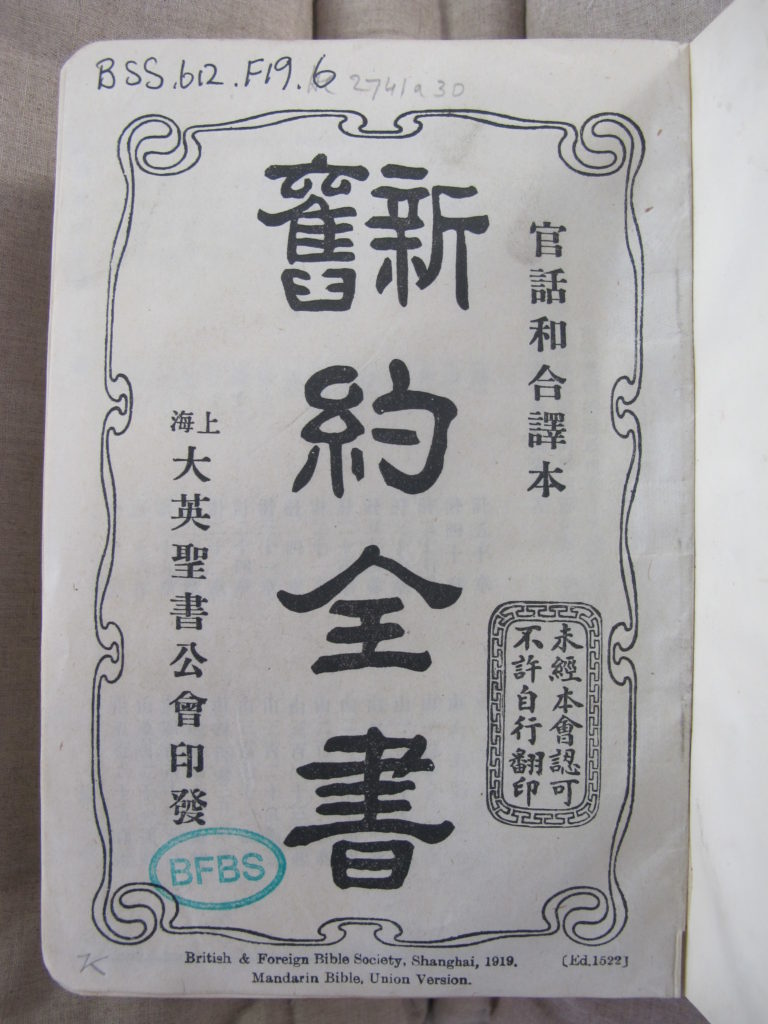 BSS.612.F19.6
2741a30
官話和合譯本
新舊
約全書
上海
大英聖書公會印發
未經本會認可
不許自行翻印
BFBS
British & Foreign Bible Society, Shanghai, 1919.
[Ed.1522]
Mandarin Bible, Union Version.
K